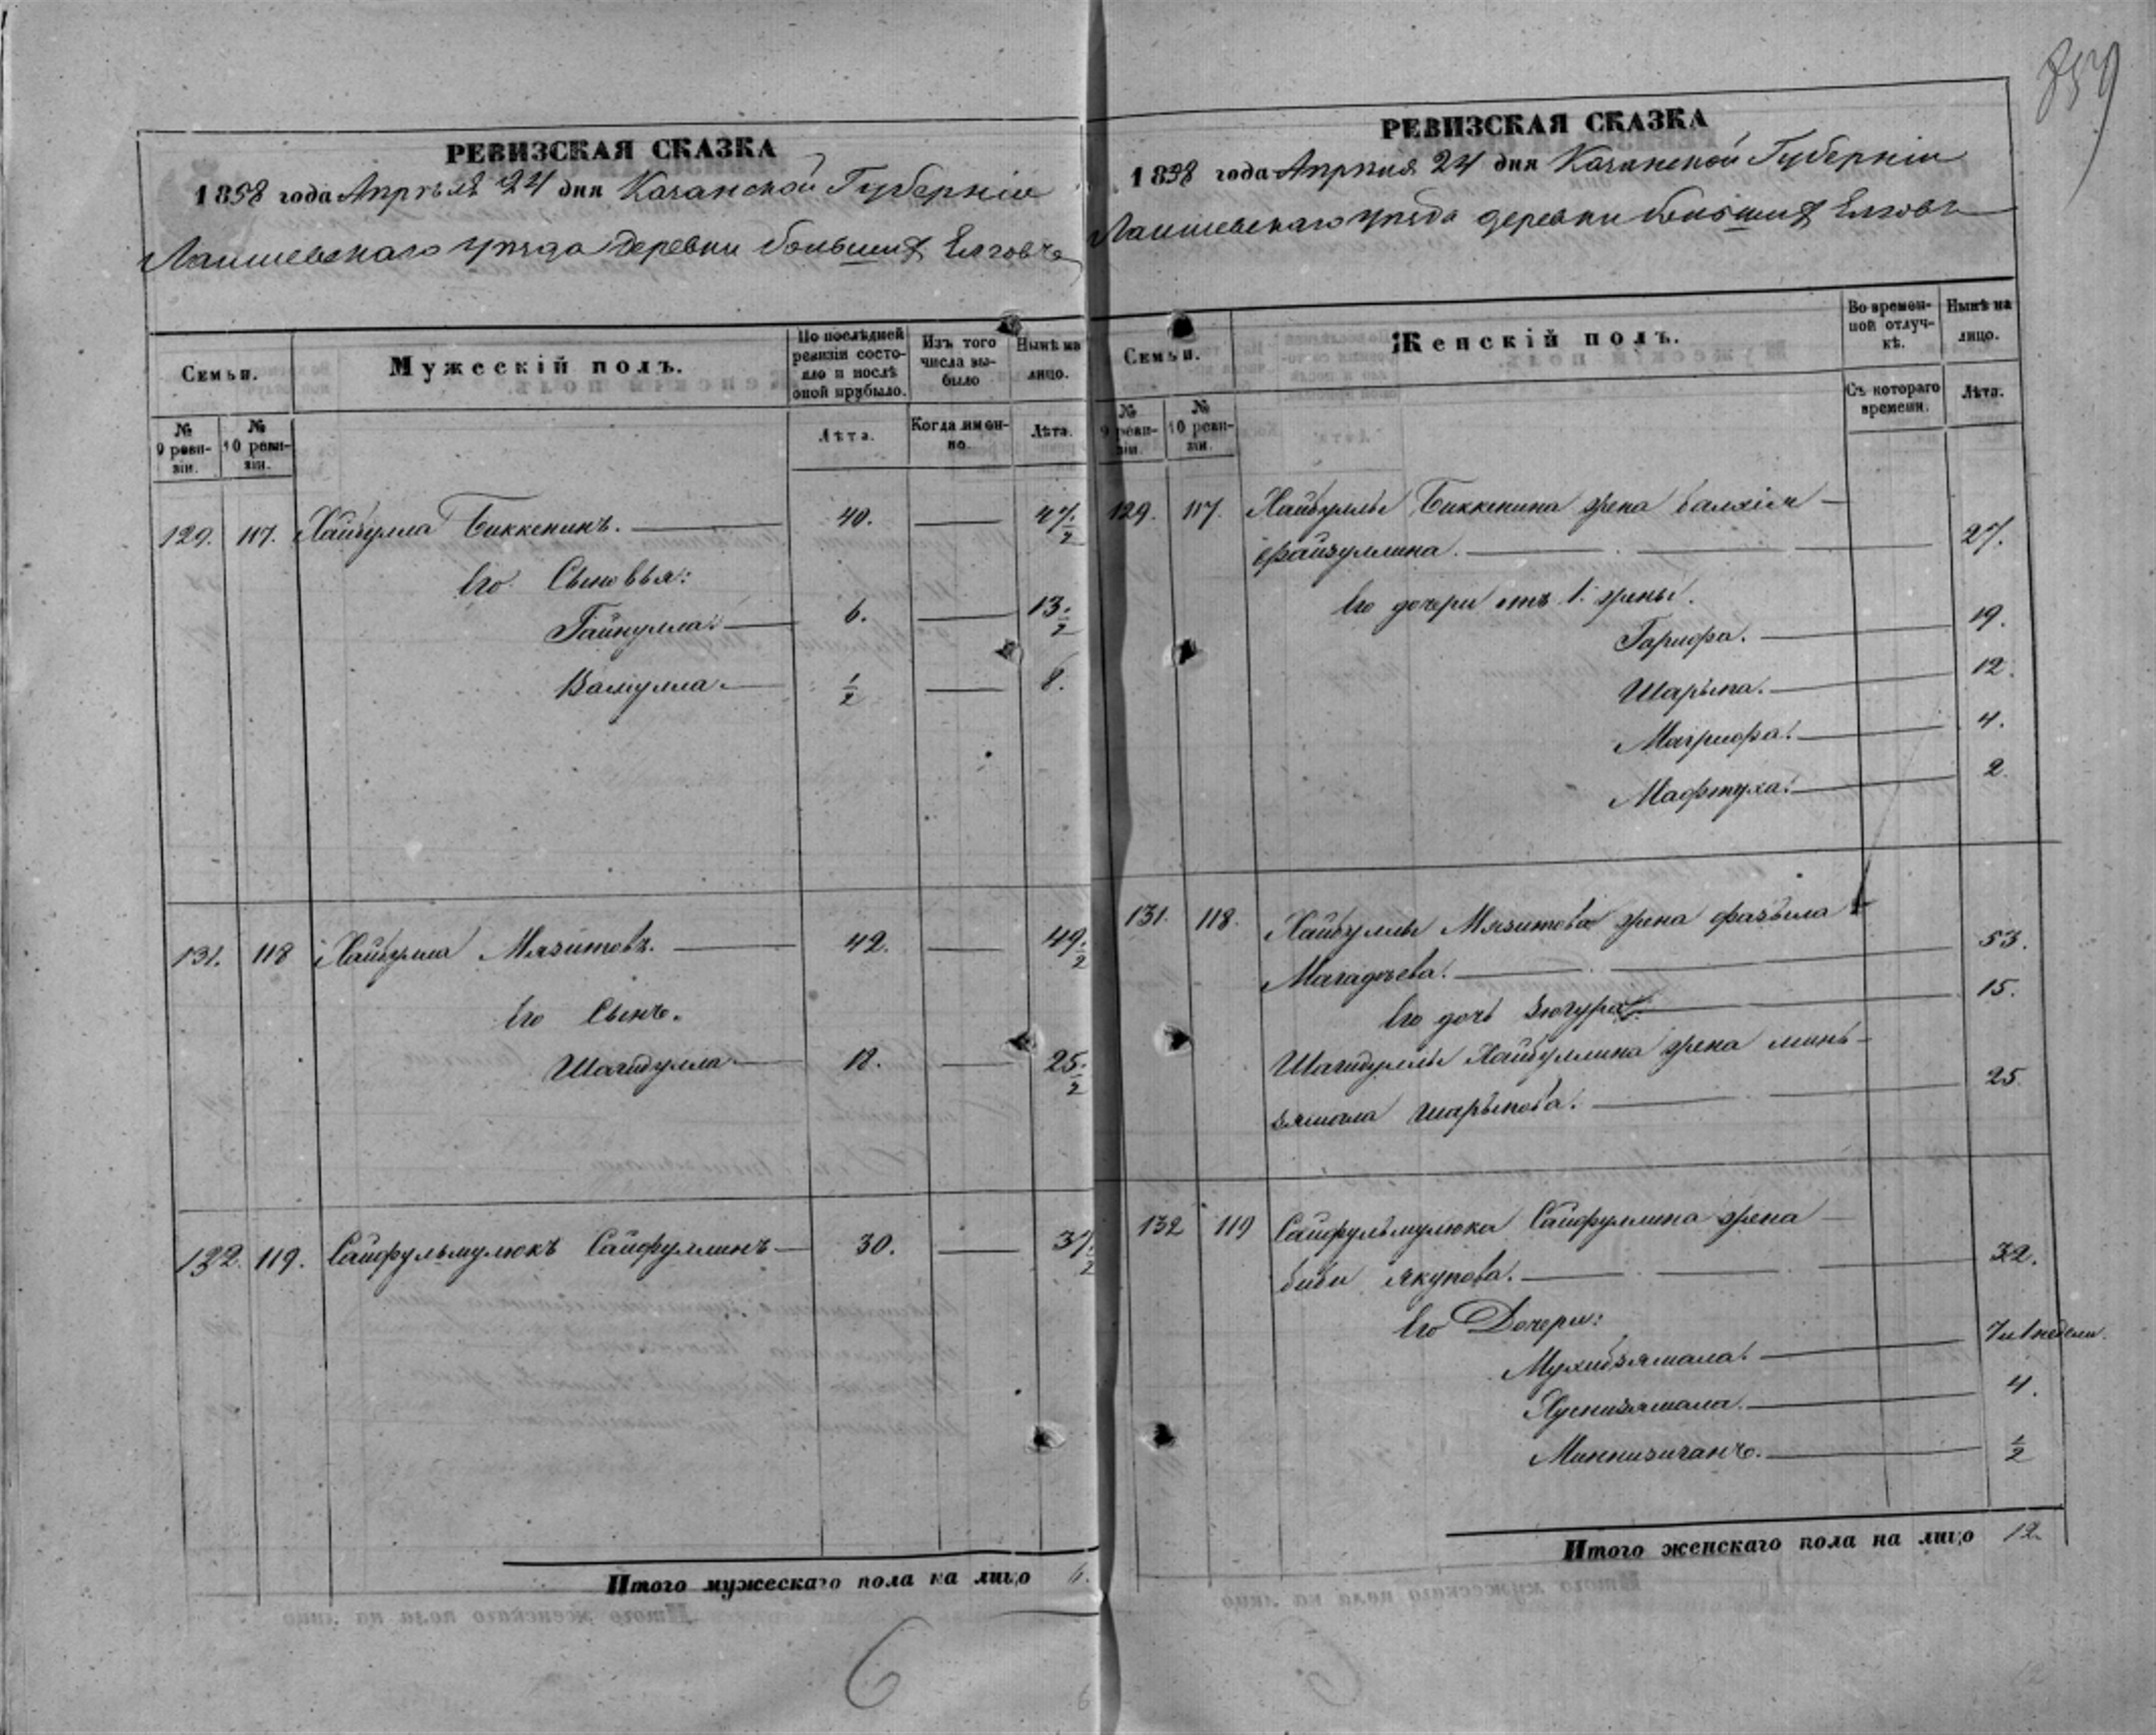 859
РЕВИЗСКАЯ СКАЗКА
1858 года Апрѣля 24 дня Казанской Губерніи
Лаишевскаго уѣзда деревни большихъ Елговъ
Семьи.
Мужескій полъ.
По послѣдней ревизіи состояло и послѣ оной прибыло.
Изъ того числа выбыло
Нынѣ на лицо.
№ 9 ревизіи.
№ 10 ревизіи.
Лѣта.
Когда именно.
Лѣта.
129. 117. Хайбулла Биккенинъ. 40. 47 1/2
Его Сыновья:
Гайнулла. 6. 13 1/2
Валиулла. 1/2 8.
131. 118 Хайбулла Мязитовъ. 42. 49 1/2
Его Сынъ.
Шагидулла 18. 25 1/2
132. 119. Сайфульмулюкъ Сайфуллинъ 30. 37 1/2
Итого мужескаго пола на лицо 6.
6
РЕВИЗСКАЯ СКАЗКА
1858 года Апрѣля 24 дня Казанской Губерніи
Лаишевскаго уѣзда деревни большихъ Елговъ
Семьи.
Женскій полъ.
Во временной отлучкѣ.
Нынѣ на лицо.
№ 9 ревизіи.
№ 10 ревизіи.
Съ котораго времени.
Лѣта.
129. 117. Хайбуллы Биккенина жена
файзуллина. 27.
Его дочери отъ 1. жены.
Гарифа. 19.
Шарыпа. 12.
Магрифа. 4.
Мафтуха. 2.
131. 118. Хайбуллы Мязитова жена фазыла
Магадѣева. 53.
Его дочь Зюгура. 15.
Шагидуллы Хайбуллина жена минь-
зямала шарыпова. 25.
132 119 Сайфульмулюка Сайфуллина жена
биби Якупова. 32.
Его Дочери:
Мухибзямала. 7 недели.
Хуснизямала. 4.
Миннизиганъ. 1/2
Итого женскаго пола на лицо 12